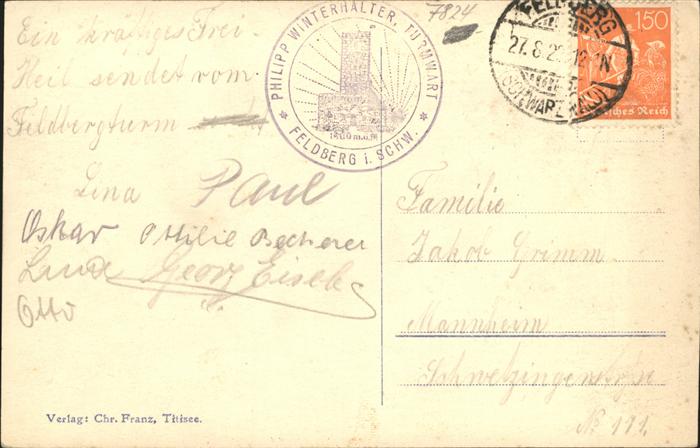 Ein kräftiges Frei-
Heil sendet vom
Feldbergturm
Lina Paul
Oskar Ottilie Becherer
Georg
Otto
7824
PHILIPP WINTERHALTER, TURMWART
* FELDBERG i. SCHW. *
FELDBERG
27.8.
(SCHWARZWALD)
150
Deutsches Reich
Familie
Jakob Grimm
Mannheim
Schwetzingerstr.
№ 191.
Verlag: Chr. Franz, Titisee.